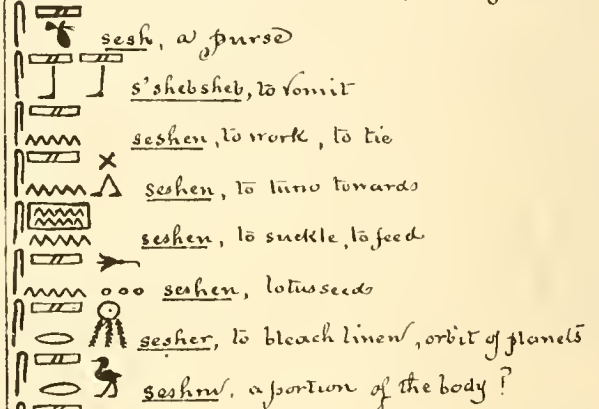 sesh, a purse
s'shebsheb, to vomit
seshen, to work, to tie
seshen, to turn towards
seshen, to suckle, to feed
seshen, lotus seeds
sesher, to bleach linen, orbit of planets
seshru, a portion of the body?